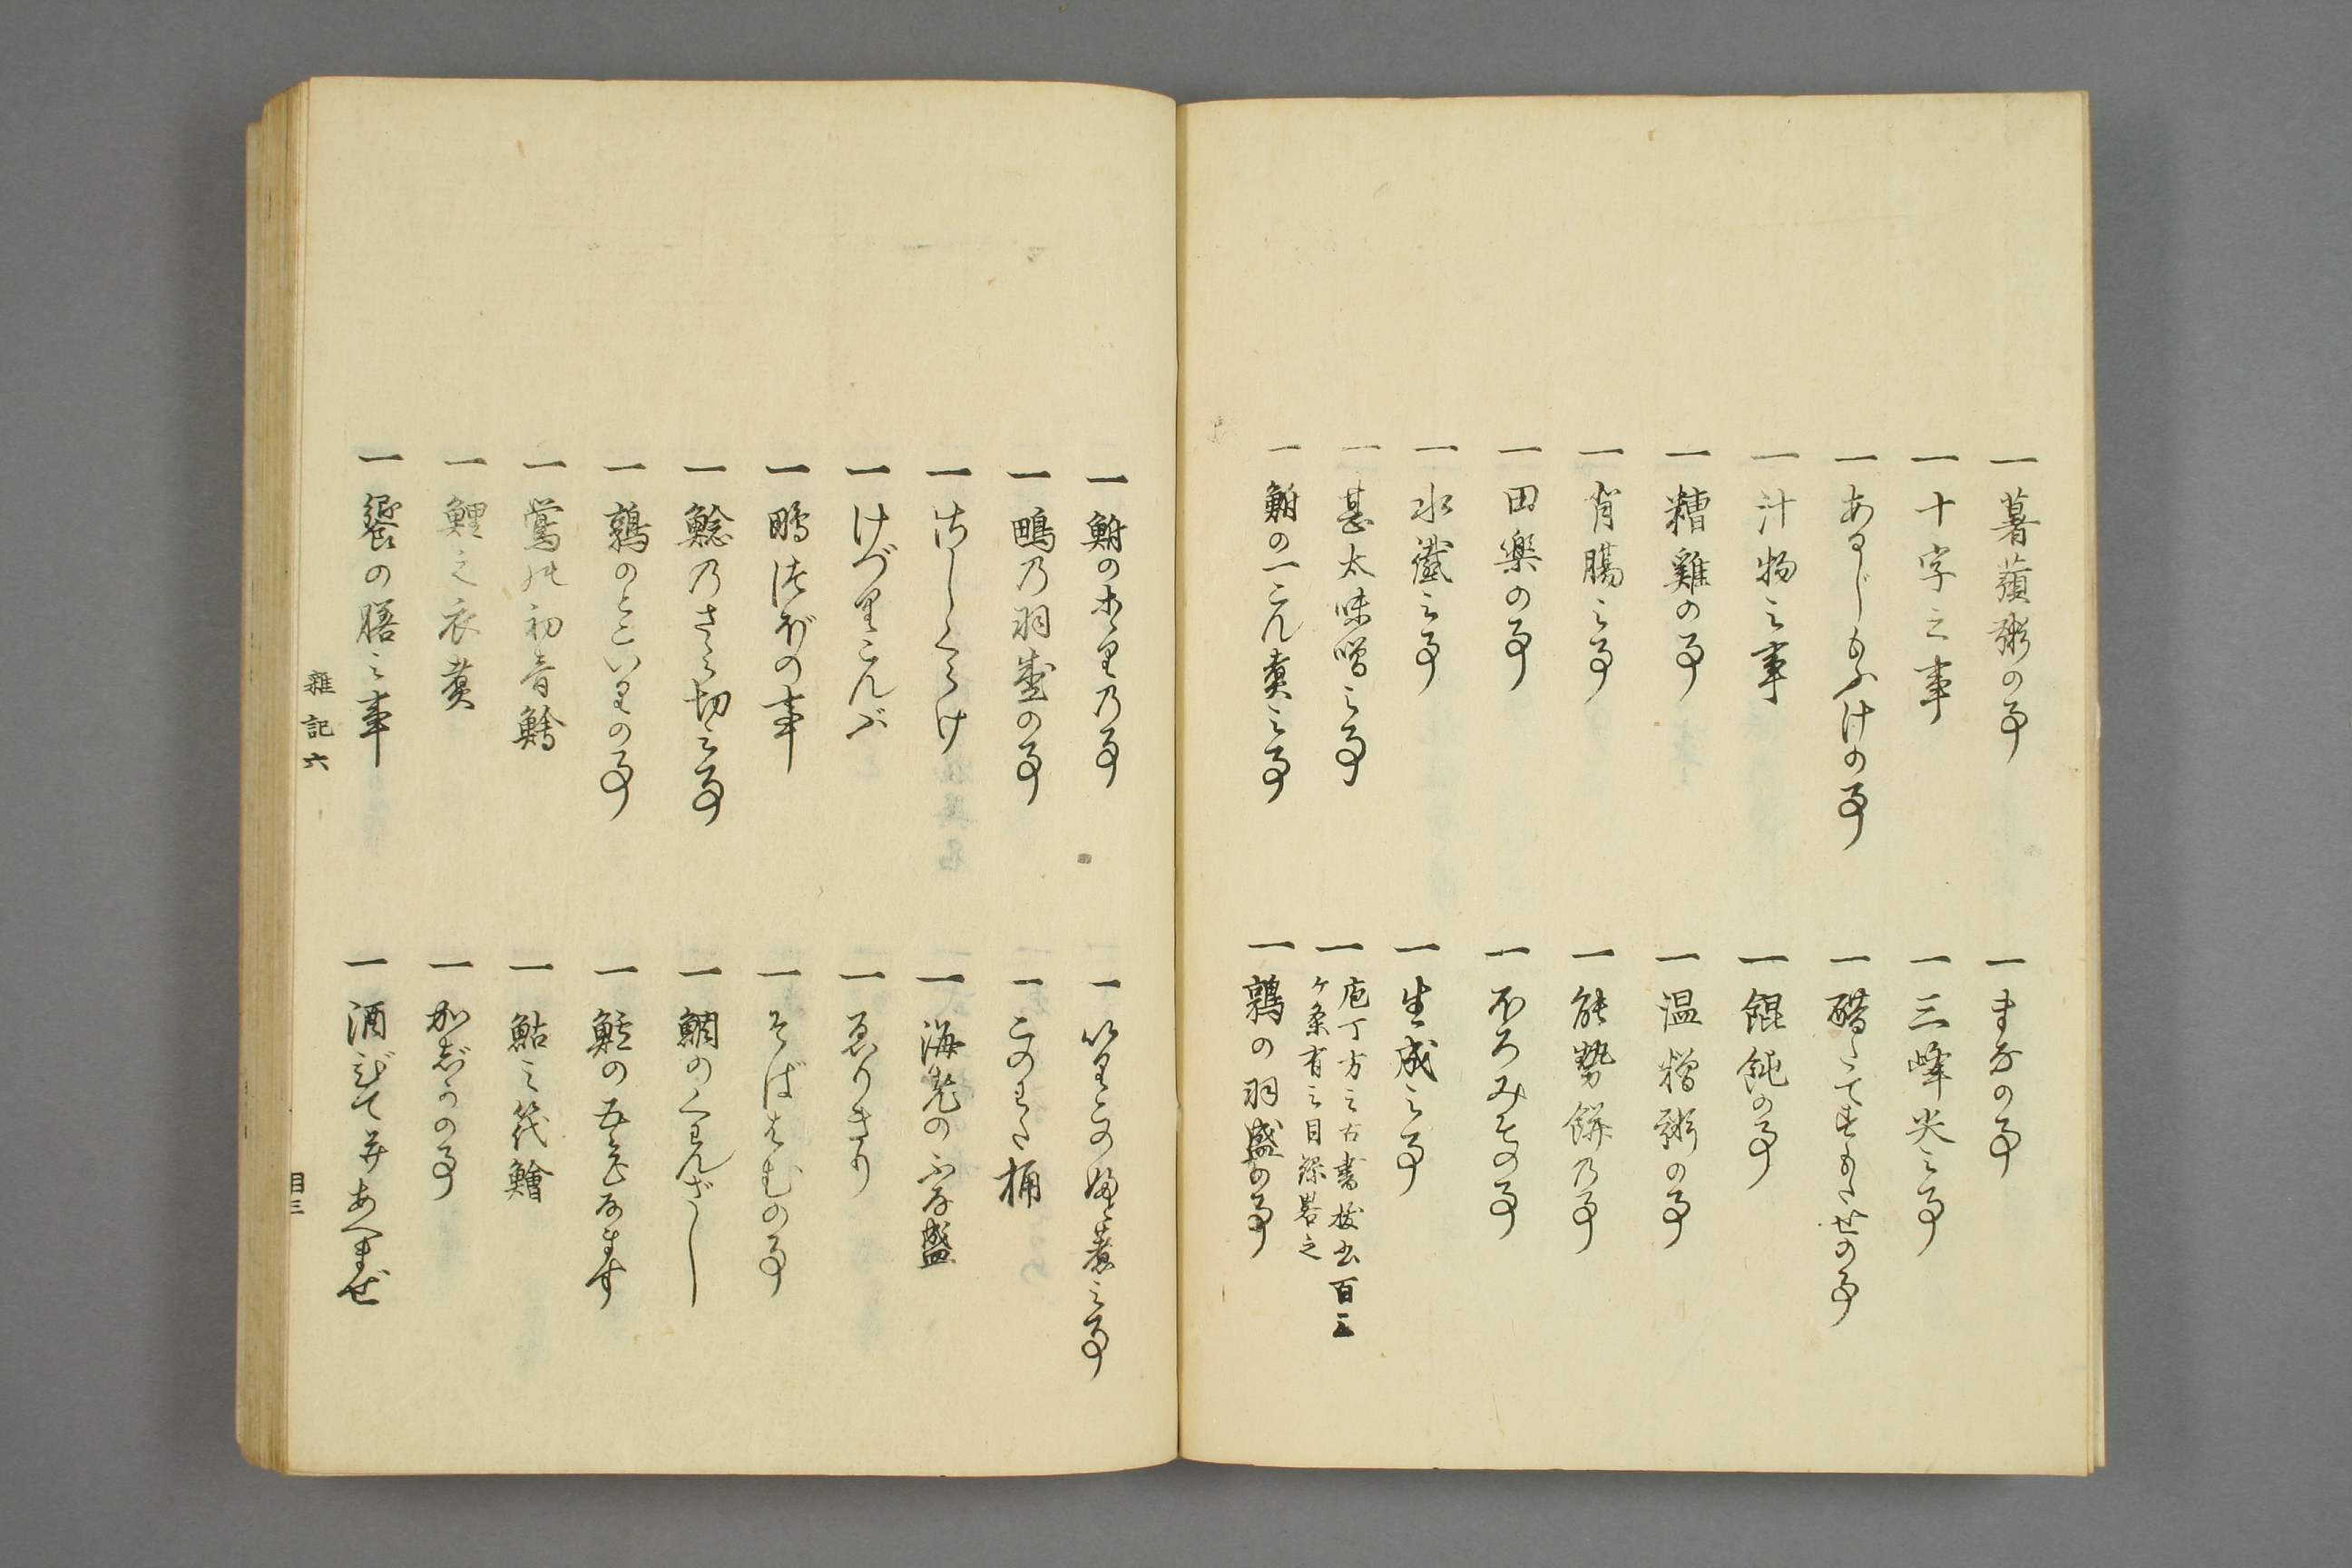 一薯蕷粥の事
一まなの事
一十字之事
一三峰尖之事
一あるじもふけの事
一醋にてすかたせの事
一汁物之事
一餛飩の事
一糟雞の事
一温糟粥の事
一背腸之事
一能勢餅乃事
一田楽の事
一ふろみその事
一水蟹之事
一生成之事
一甚太味噌之事
一庖丁方之古書抜書百三
ケ条有之目録畧之
一鮒の一こん煮之事
一鶉の羽盛の事
一鮒の乃事
一いりこの煮之事
一鴫乃羽盛の事
一このわた桶
一さしくらけ
一海老のふな盛
一けづりこんぶ
一ゑりきり
一鴫つぼの事
一そばはむの事
一鯰乃さゝら切之事
一鯛のくわんざし
一鶉のとこいりの事
一鮭の五分なます
一鶯の初音鱠
一鮎之筏鱠
一鯉之衣煮
一かぢかの事
一饗の膳之事
一酒びて并あへまぜ
雑記六
目三